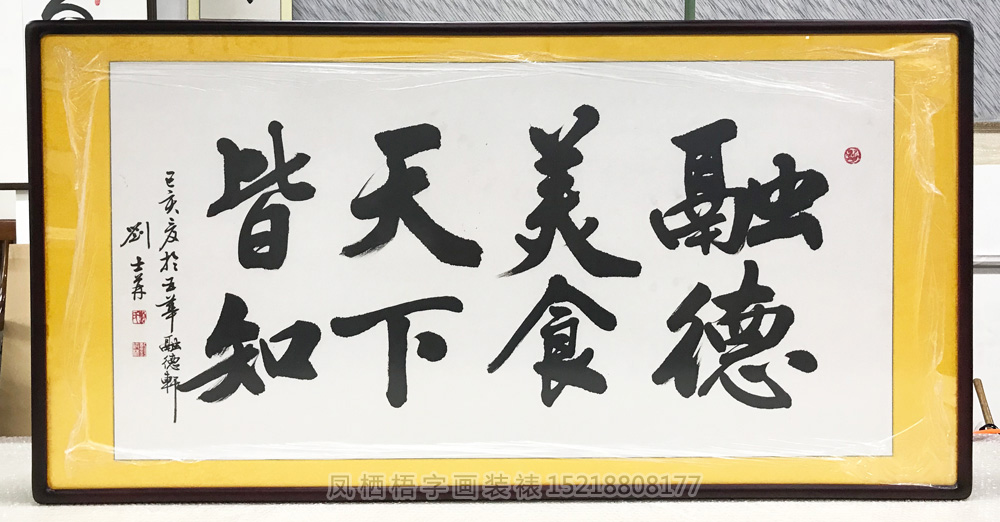 融德
美食
天下
皆知
己亥夏於五華融德軒
劉士
凤栖梧字画装裱15218808177